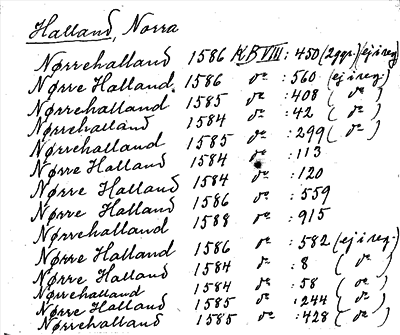 Halland, Norra
Nørrehalland 1586 KB VIII : 450 (2ggr.) (ej i reg.)
Nørre Halland. 1586 do : 560 (ej i reg.)
Nørrehalland 1585 do : 408 ( do )
Nørrehalland 1584 do : 42 ( do )
Nørrehalland 1585 do : 299 ( do )
Nørre Halland 1584 do : 113
Nørre Halland 1584 do : 120
Nørre Halland 1586 do : 559
Nørrehalland 1588 do : 915
Nørre Halland 1586 do : 582 (ej i reg.)
Nørre Halland 1584 do : 8 ( do )
Nørrehalland 1584 do : 58 ( do )
Nørre Halland 1585 do : 244 ( do )
Nørrehalland 1585 do : 428 ( do )